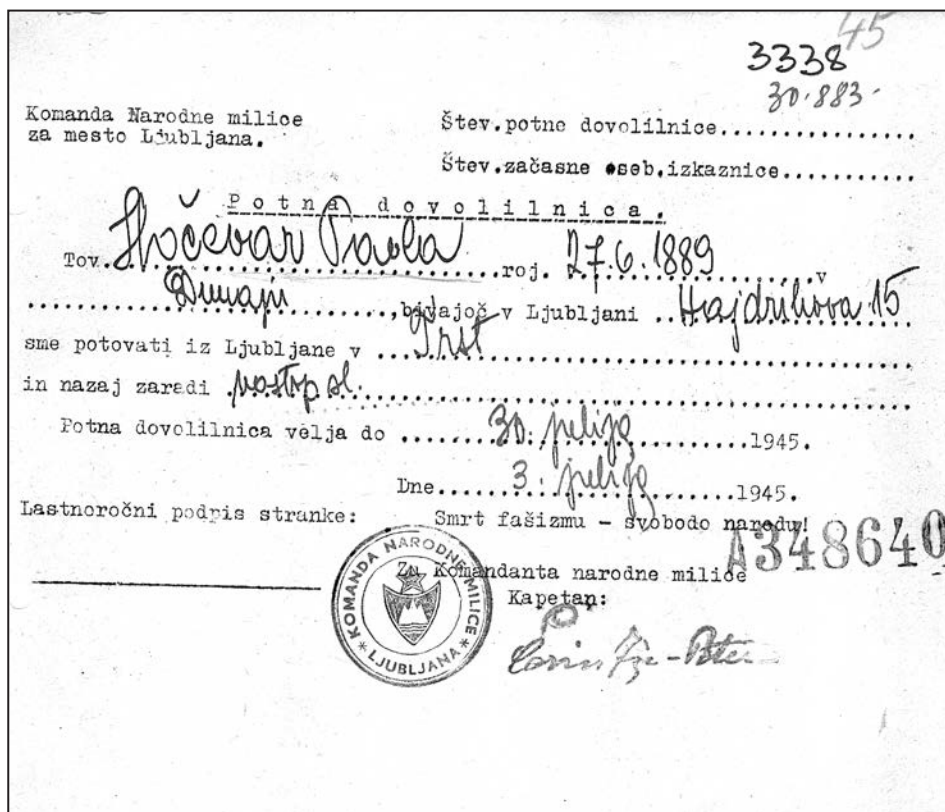 45
3338
30.883.
Komanda Narodne milice
za mesto Ljubljana.
Štev.potne dovolilnice................
Štev.začasne oseb.izkaznice............
Potna dovolilnica.
Tov. Hočevar Pavla roj. 27.6.1889 v
Dunaju, bivajoč v Ljubljani Hajdrihova 15
sme potovati iz Ljubljane v Trst
in nazaj zaradi
Potna dovolilnica velja do 30. julija 1945.
Dne 3. julija 1945.
Lastnoročni podpis stranke:
Smrt fašizmu - svobodo narodu!
A348640
Za Komandanta narodne milice
Kapetan:
KOMANDA NARODNE MILICE
* LJUBLJANA *